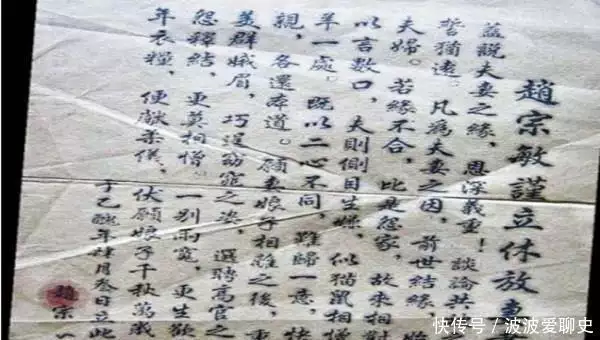 趙宗敏謹立休放妻
蓋説夫妻之緣，恩深義重！談論共
誓獨遠。凡為夫妻之因，前世結緣，
夫婦。若緣不合，比是怨家，故來相對
以言數口，夫則側目生嫌，似猫鼠相憎
羊一處。既以二心不同，難歸一意，快
親，各還本道。願妻娘子相離之後，重
美群娥眉，巧逞窈窕之姿，選聘高官之
怨釋結，更莫相憎，一別兩寬，更生歡
年衣糧，便獻柔儀，伏願娘子千秋萬歲
于乙醜年肆月叁日立此
趙宗
快传号 / 波波爱聊史